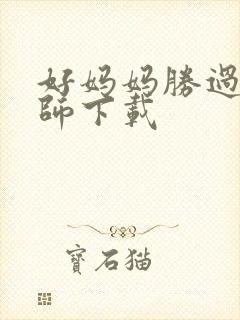 好妈妈勝過
師下載
寶石猫